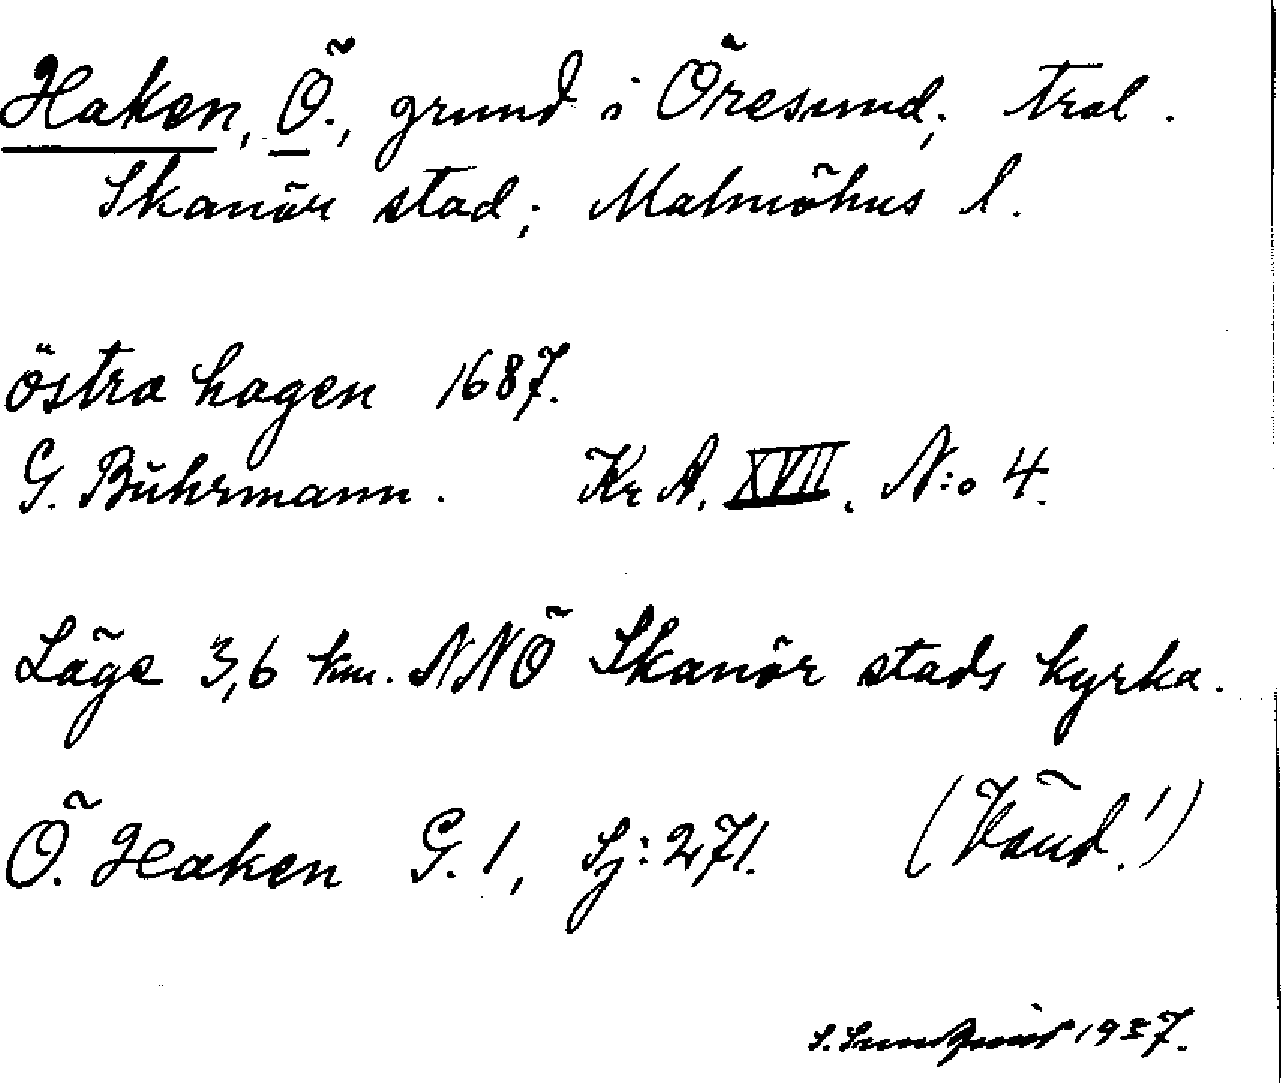 Haken, Ö., grund i Öresund; tral.
Skanör stad; Malmöhus l.
östra hagen 1687.
G. Buhrmann. Kr A. XVII. N:o 4.
Läge 3,6 km. NNÖ Skanör stads kyrka.
Ö. Haken G. 1, Sj: 271. (Vänd!)
S. Sundqvist 1937.